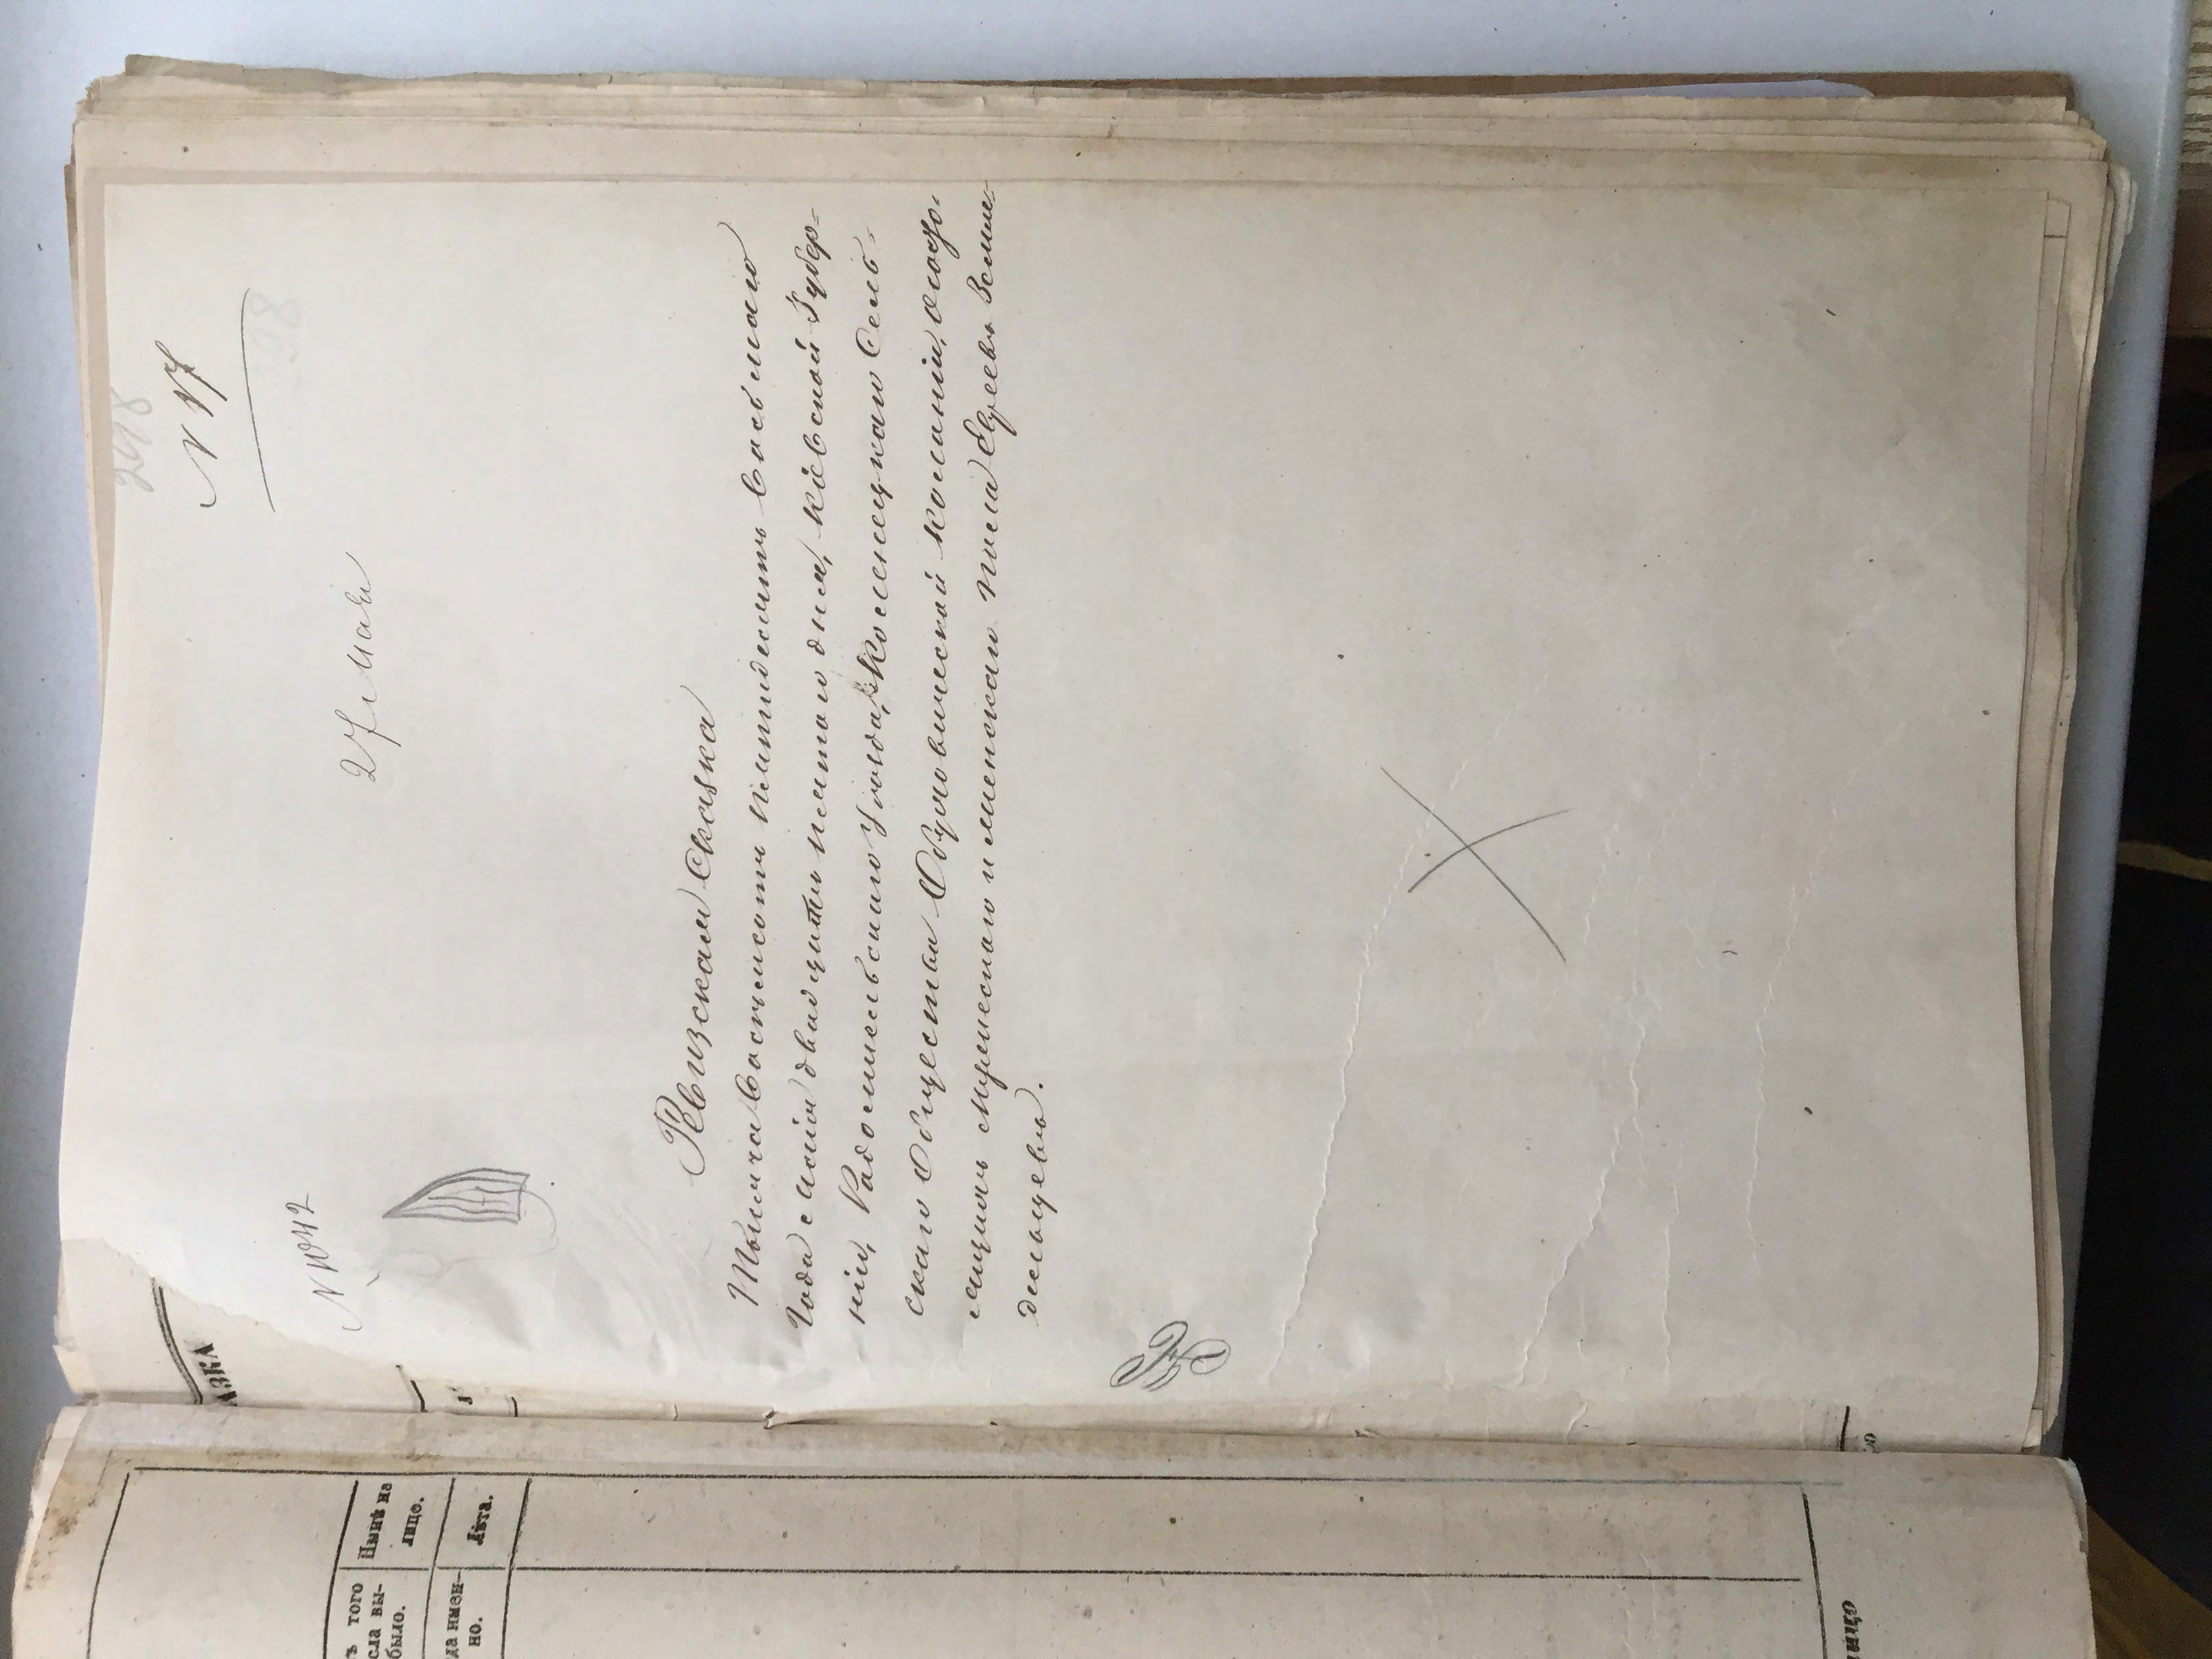 298
N 17
98
27 Мая
N 1042
Ревизская Сказка
Тысяча восемсотъ пятидесятъ восьмаго
Года Маія двадцать пятаго дня, Кіевской Губер=
ніи, Радомысльскаго Уѣзда, Коленецкаго Сель=
скаго Общества Обуховической Колоніи, о
мущизмъ мужескаго и женскаго пола Евреевъ Земле=
дѣльцевъ.
АЗКА
ъ того
сла вы-
было.
Нынѣ на
лицо.
да имен-
но.
Лѣта.